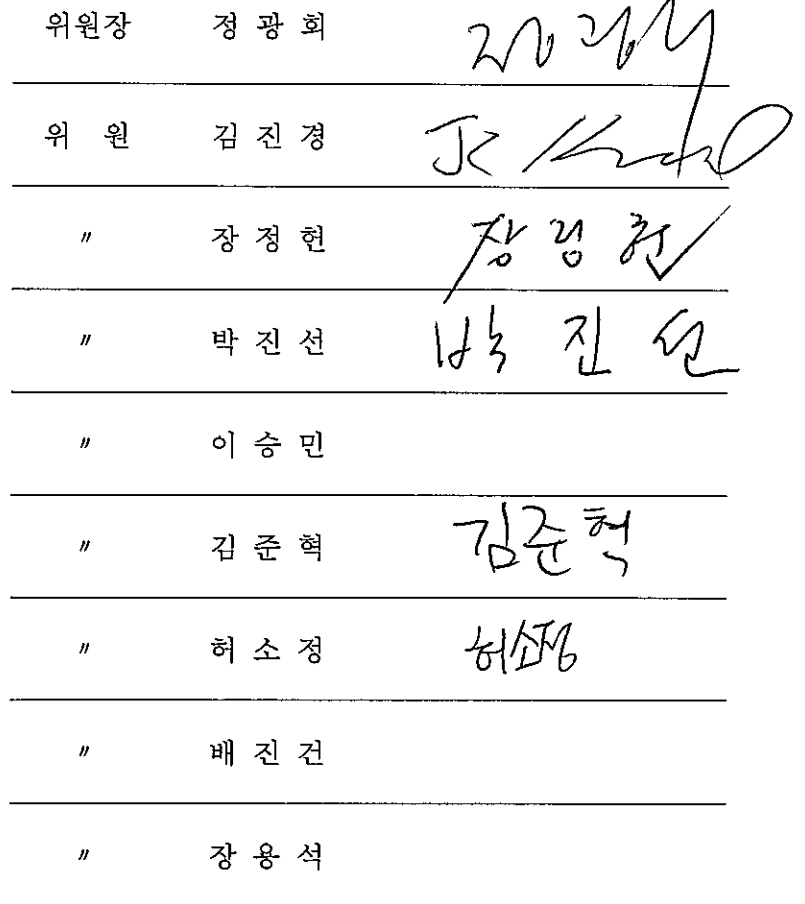 위원장 정 광 회
위 원 김 진 경
〃 장 정 헌 장 정 헌
〃 박 진 선 박 진 선
〃 이 승 민
〃 김 준 혁 김준혁
〃 허 소 정 허소정
〃 배 진 건
〃 장 용 석